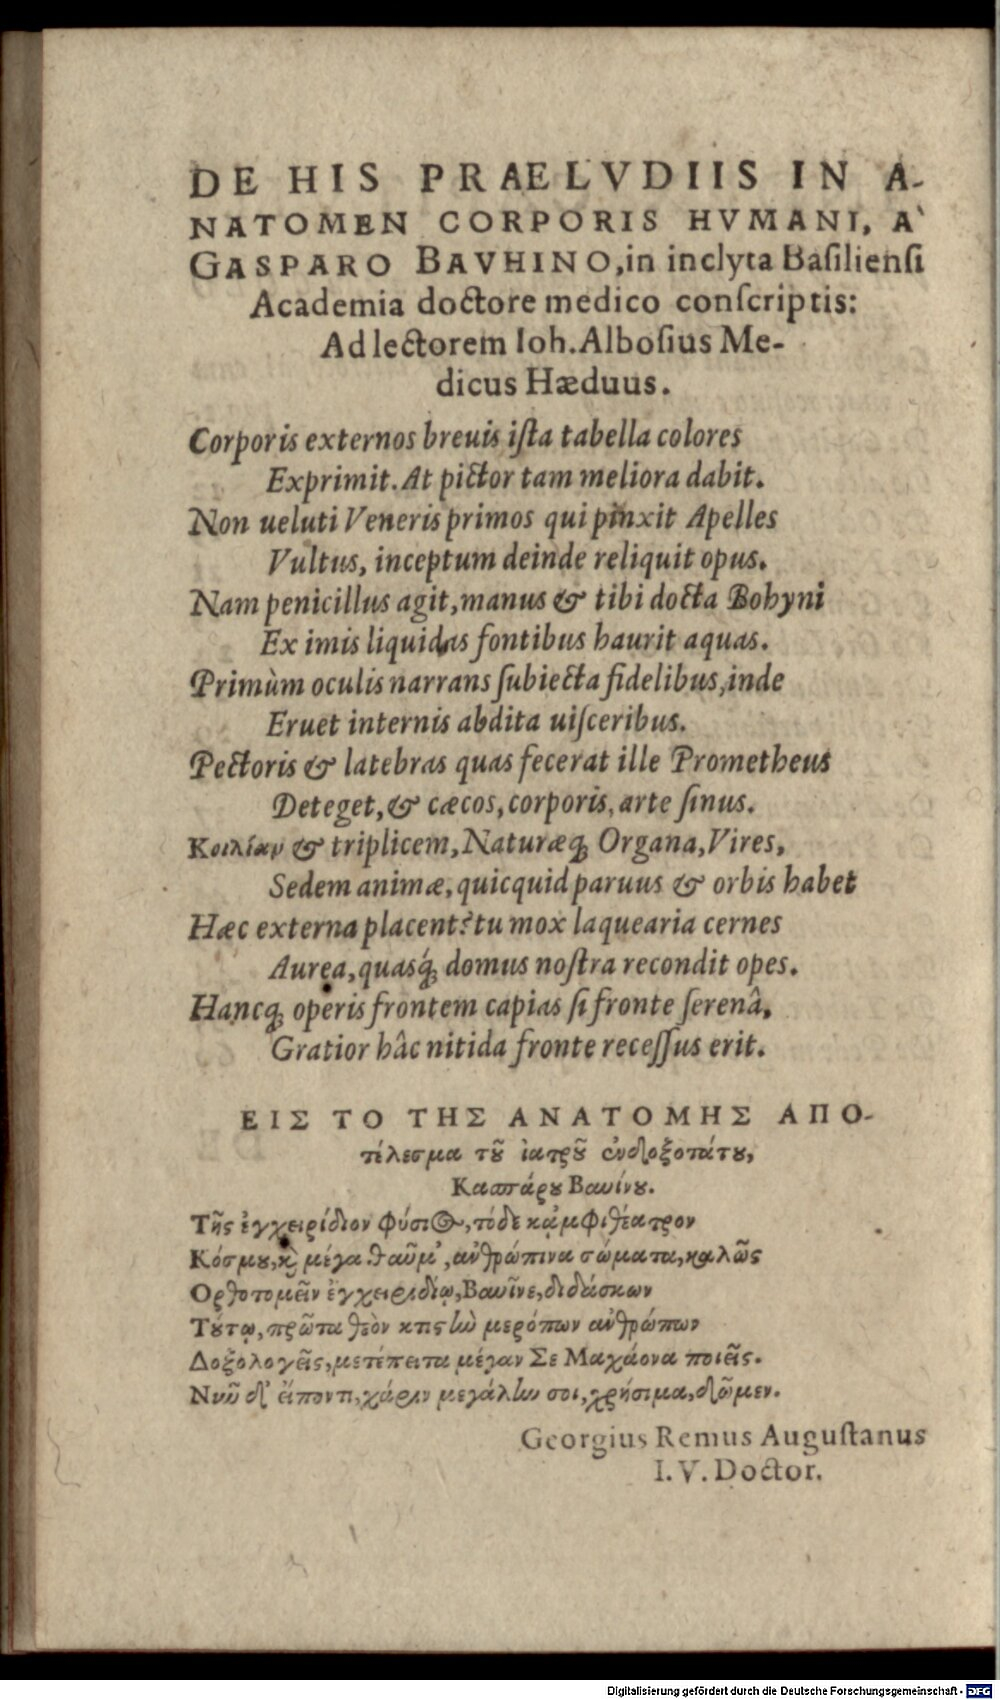 DE HIS PRAELVDIIS IN A-
NATOMEN CORPORIS HVMANI, A`
GASPARO BAVHINO, in inclyta Basiliensi
Academia doctore medico conscriptis:
Ad lectorem Ioh. Albosius Me-
dicus Hæduus.
Corporis externos breuis ista tabella colores
Exprimit. At pictor tam meliora dabit.
Non ueluti Veneris primos qui pinxit Apelles
Vultus, inceptum deinde reliquit opus.
Nam penicillus agit, manus & tibi docta Bohyni
Ex imis liquidas fontibus haurit aquas.
Primùm oculis narrans subiecta fidelibus, inde
Eruet internis abdita uisceribus.
Pectoris & latebras quas fecerat ille Prometheus
Deteget, & cæcos, corporis, arte sinus.
Κοιλίαν & triplicem, Naturæq́; Organa, Vires,
Sedem animæ, quicquid paruus & orbis habet
Hæc externa placent? tu mox laquearia cernes
Aurea, quasq́; domus nostra recondit opes.
Hancq́; operis frontem capias si fronte serenâ,
Gratior hâc nitida fronte recessus erit.
ΕΙΣ ΤΟ ΤΗΣ ΑΝΑΤΟΜΗΣ ΑΠΟ-
τέλεσμα τȣ͂ ἰατρȣ͂ ἐνδοξοτάτȣ,
Κασπάρȣ Βαυίνȣ.
Τῆς ἐγχειρίδιον φύσιος, τόδε κἀμφιθέατρον
Κόσμȣ, κὶ μέγα θαῦμ', ἀνθρώπινα σώματα, καλῶς
Ορθοτομεῖν ἐγχειριδίῳ, Βαυῖνε, διδάσκων
Τȣ́τῳ, πρῶτα θεὸν κτιστὴν μερόπων ἀνθρώπων
Δοξολογεῖς, μετέπειτα μέγαν Σε Μαχάονα ποιεῖς.
Νυῦ δ' εἴποντι, χάριν μεγάλην σοι, χρήσιμα, δῶμεν.
Georgius Remus Augustanus
I. V. Doctor.
Digitalisierung gefördert durch die Deutsche Forschungsgemeinschaft - DFG